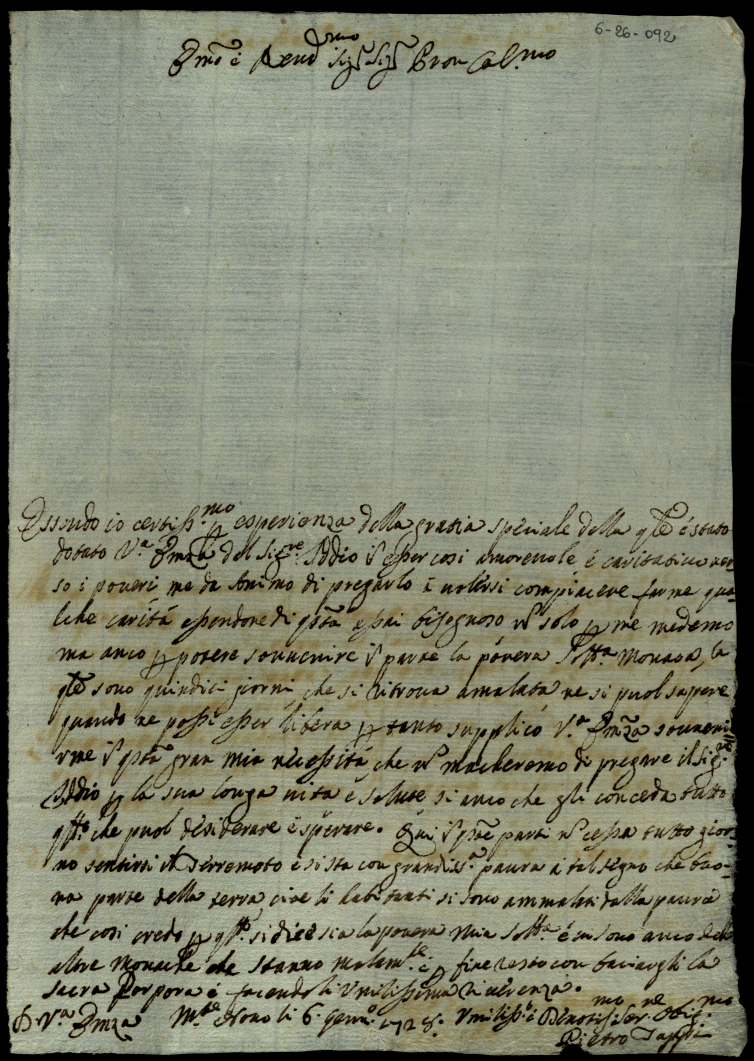 6-26-092
Emo e Rendmo Sigr Sigr Pron Colmo
Essendo io certissmo esperienza della gratia speciale della qle é stato
dotato Va Emza del Sigre Iddio esser cosi amorevole é caritativo ver
so i poveri me da Animo di pregarlo à volersi compiacere farme qua
lche caritá essendone di qsta assai bisognoso solo me medemo
ma anco potere sovvenire parte la povera Monaca, la
qle sono quindici giorni che si ritrova amalata ne si puol sapere
quando ne possi esser libera tanto supplicó Va Emza soveni
rme gran mia necessitá che mancheremo di pregare il Sigre
Iddio la sua longa vita é salute si anco che gli conceda tutto
qllo che puol desiderare é sperare. Qui parti cessa tutto gior
no sentirsi il Terremoto é si sta con grandissa paura à tal segno che buo
na parte della terra cioe li habitanti si sono ammalati dalla paura
che cosi credo si dice sia la povera Mia é vi sono anco delle
altre Monache che stanno malamte é fine resto con baciargli la
Sacra Porpora é facendoli Umilissima riverenza.
D Va Emza Mte Nono li 6 Genro 1728. Umilissmo é Devotissmo Ser. obligmo
Pietro